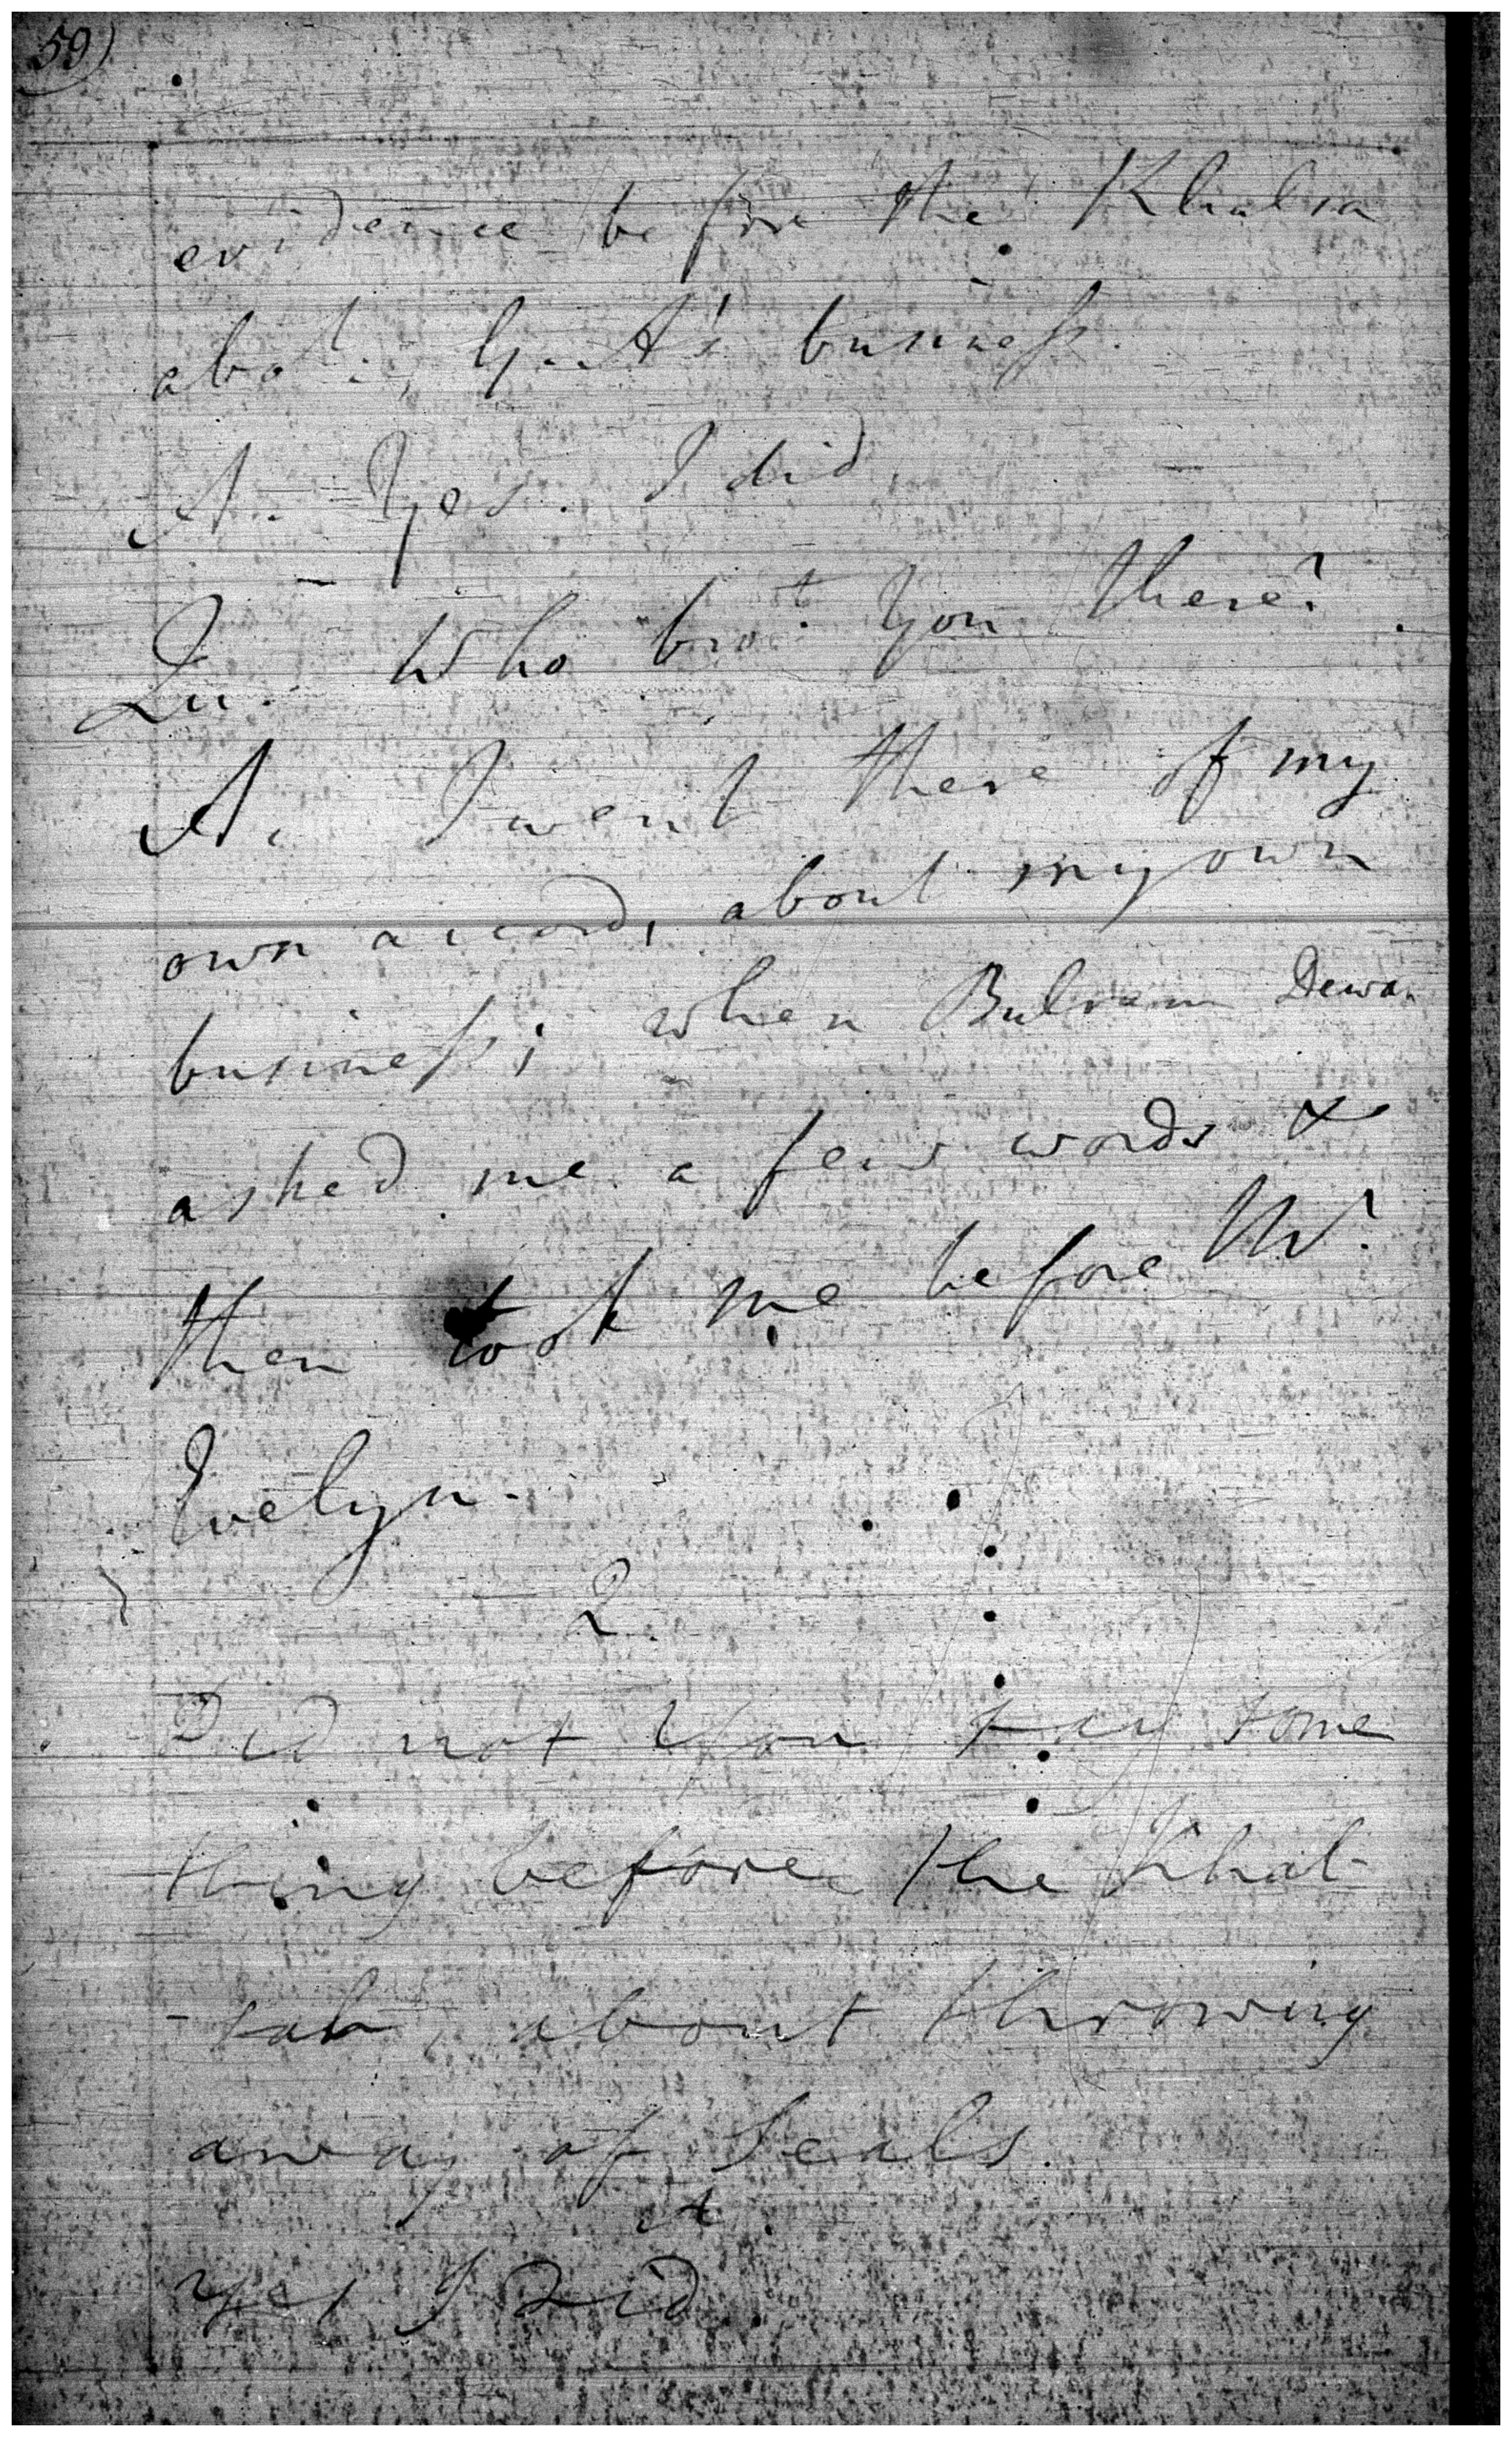 59)
evidence before the Khalsa
abo.t. Govt's business.
A. Yes. I did,
Qu. Who bro.t you there?
A. I went there of my
own accord, about my own
business; when Bulram Dewan
asked me a few words &
then took me before Mr.
Evelyn.
2.
Did not you say some
thing before the Khal-
-sah, about throwing
away of Seals.
A.
Yes I did.